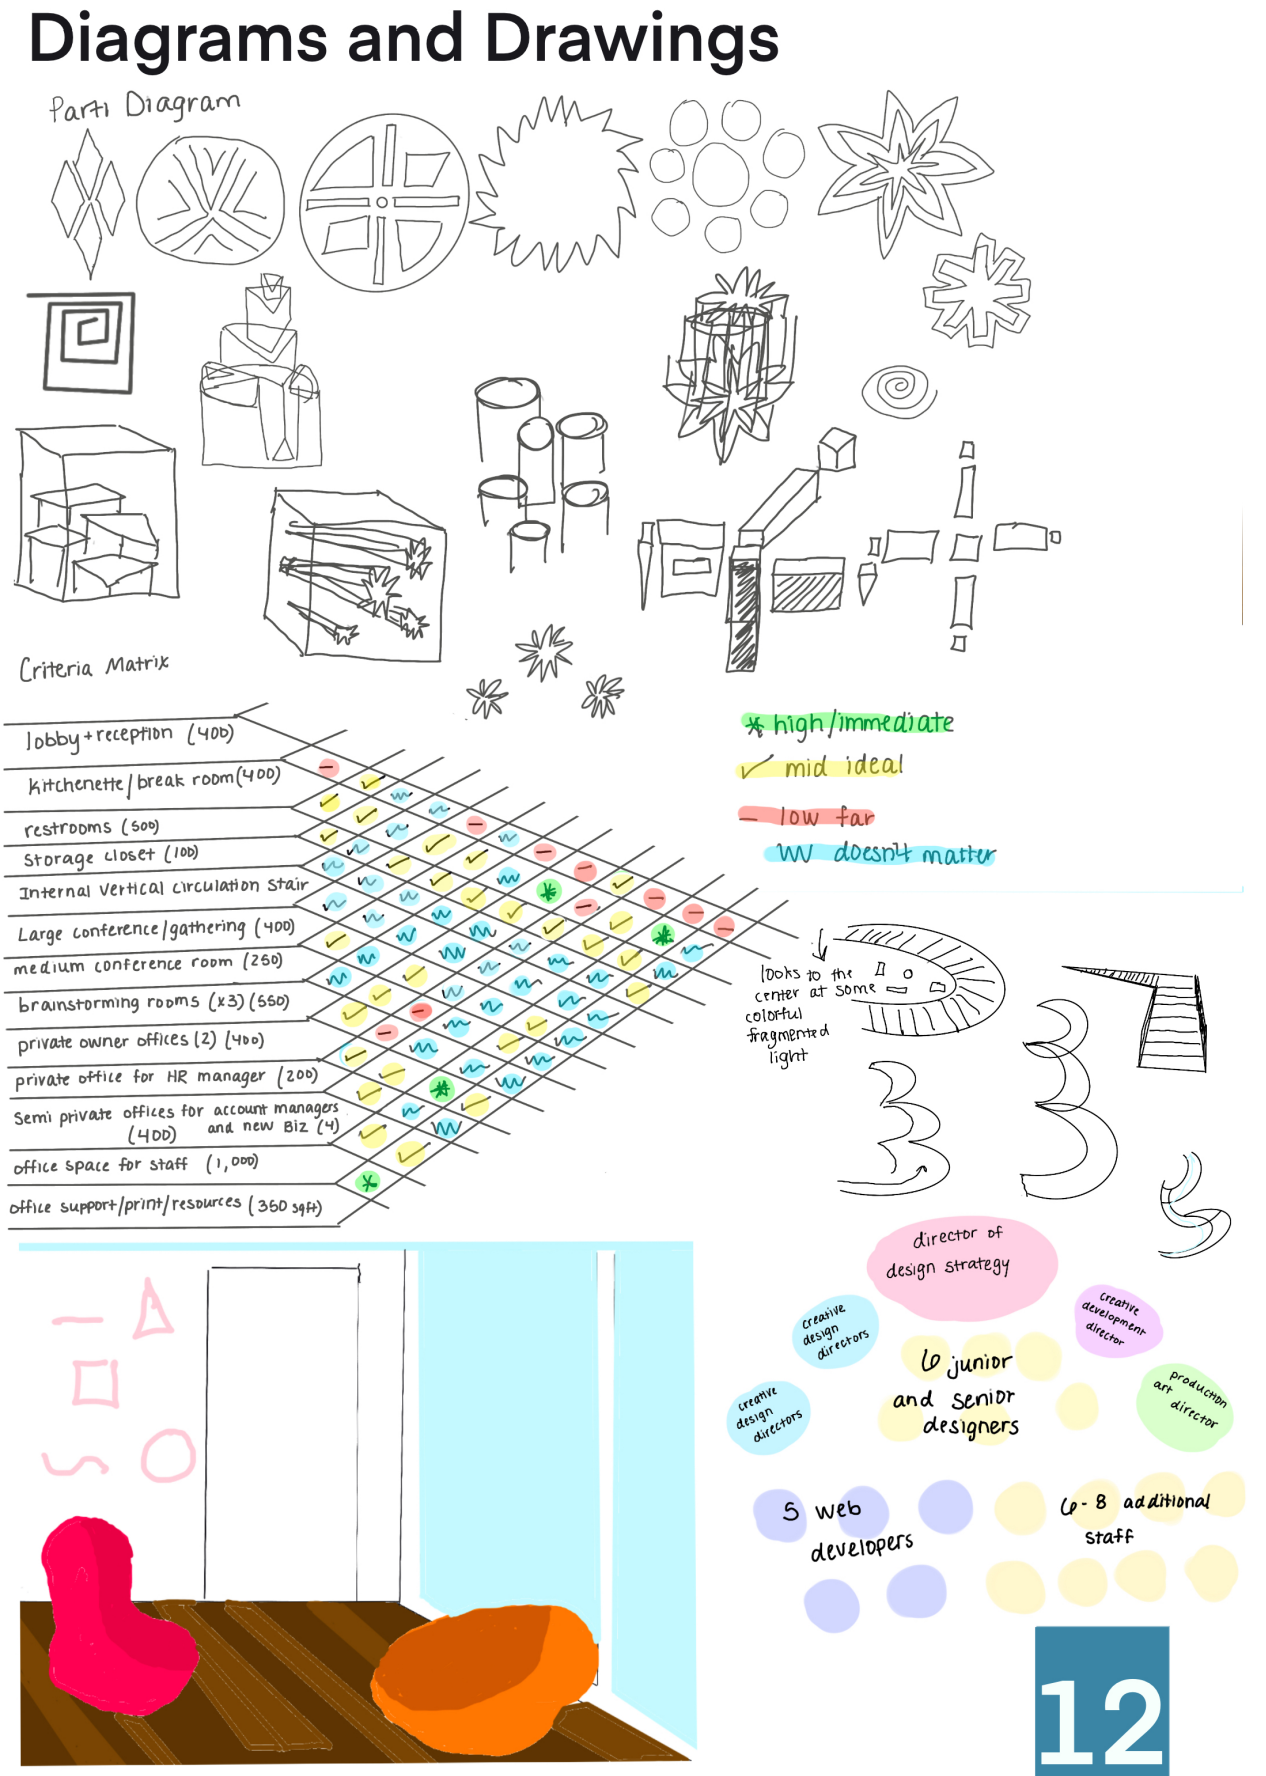 Diagrams and Drawings
Parti Diagram
Criteria Matrix
lobby+reception (400)
kitchenette/break room(400)
restrooms (500)
storage closet (100)
Internal vertical circulation stair
Large conference/gathering (400)
medium conference room (250)
brainstorming rooms (x3) (550)
private owner offices (2) (400)
private office for HR manager (200)
Semi private offices for account managers
(400) and new Biz (4)
office space for staff (1,000)
office support/print/resources (350 sqft)
high/immediate
mid ideal
low far
doesn't matter
looks to the
center at some
colorful
fragmented
light
director of
design strategy
creative
design
directors
creative
development
director
6 junior
and senior
designers
creative
design
directors
production
art
director
5 web
developers
6-8 additional
staff
12